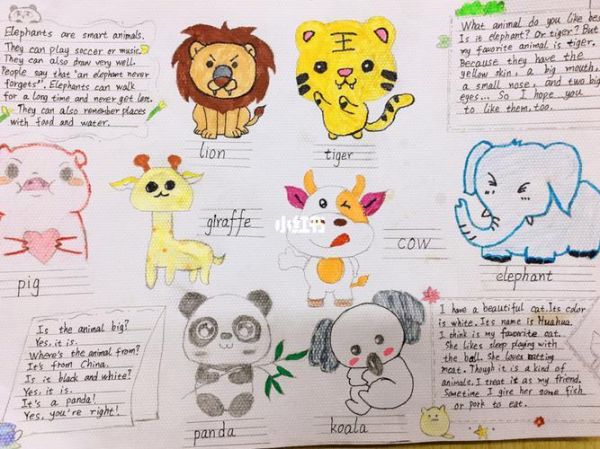 Elephants are smart animals.
They can play soccer or music.
They can also draw very well.
People say that "an elephant never
forgets". Elephants can walk
for a long time and never get lost.
They can also remember places
with food and water.
What animal do you like best
Is it elephant? Or tiger? But
my favorite animal is tiger.
Because they have the
yellow skin, a big mouth,
a small nose, and two big
eyes... So I hope you
to like them, too.
王
lion
tiger
giraffe
小红书
cow
pig
elephant
Is the animal big?
Yes, it is.
Where's the animal from?
It's from China.
Is it black and white?
Yes, it is.
It's a panda!
Yes, you're right!
panda
koala
I have a beautiful cat. Its color
is white. Its name is Huahua.
I think is my favorite cat.
She likes sleep playing with
the ball. She loves eatting
meat. Though it is a kind of
animals. I treat it as my friend.
Sometime I give her some fish
or pork to eat.